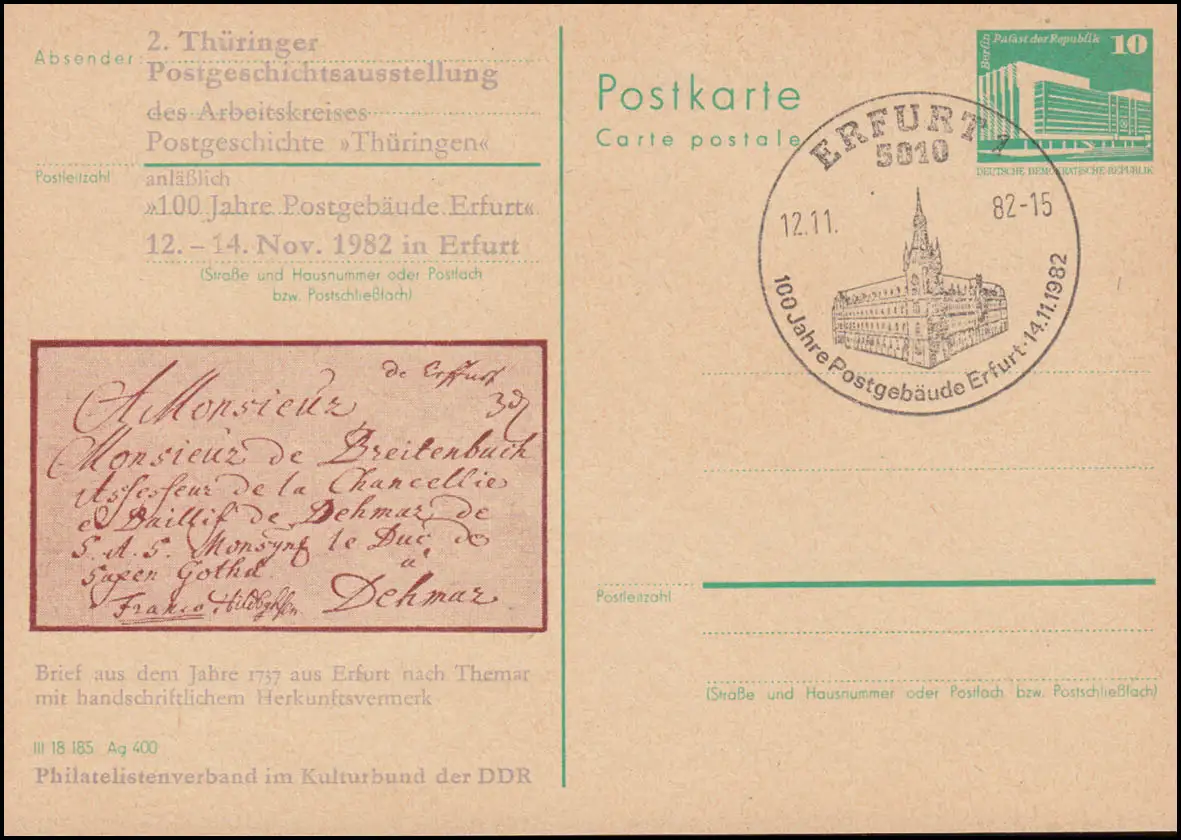 Absender
2. Thüringer
Postgeschichtsausstellung
des Arbeitskreises
Postgeschichte »Thüringen«
Postleitzahl
anläßlich
»100 Jahre Postgebäude Erfurt«
12. – 14. Nov. 1982 in Erfurt
(Straße und Hausnummer oder Postfach
bzw. Postschließfach)
de Erffurt
A Monsieur
Monsieur de Breitenbuch
Assesseur de la Chancellie
e Baillif de Dehmar de
S. A. S. Monsgnr le Duc de
Saxen Gotha
a
Franco
Dehmar
Brief aus dem Jahre 1737 aus Erfort nach Themar
mit handschriftlichem Herkunftsvermerk
III 18 185 Ag 400
Philatelistenverband im Kulturbund der DDR
Postkarte
Carte postale
Berlin
Palast der Republik
10
DEUTSCHE DEMOKRATISCHE REPUBLIK
ERFURT 1
5010
12.11. 82-15
100 Jahre Postgebäude Erfurt·14.11.1982
Postleitzahl
(Straße und Hausnummer oder Postfach bzw. Postschließfach)